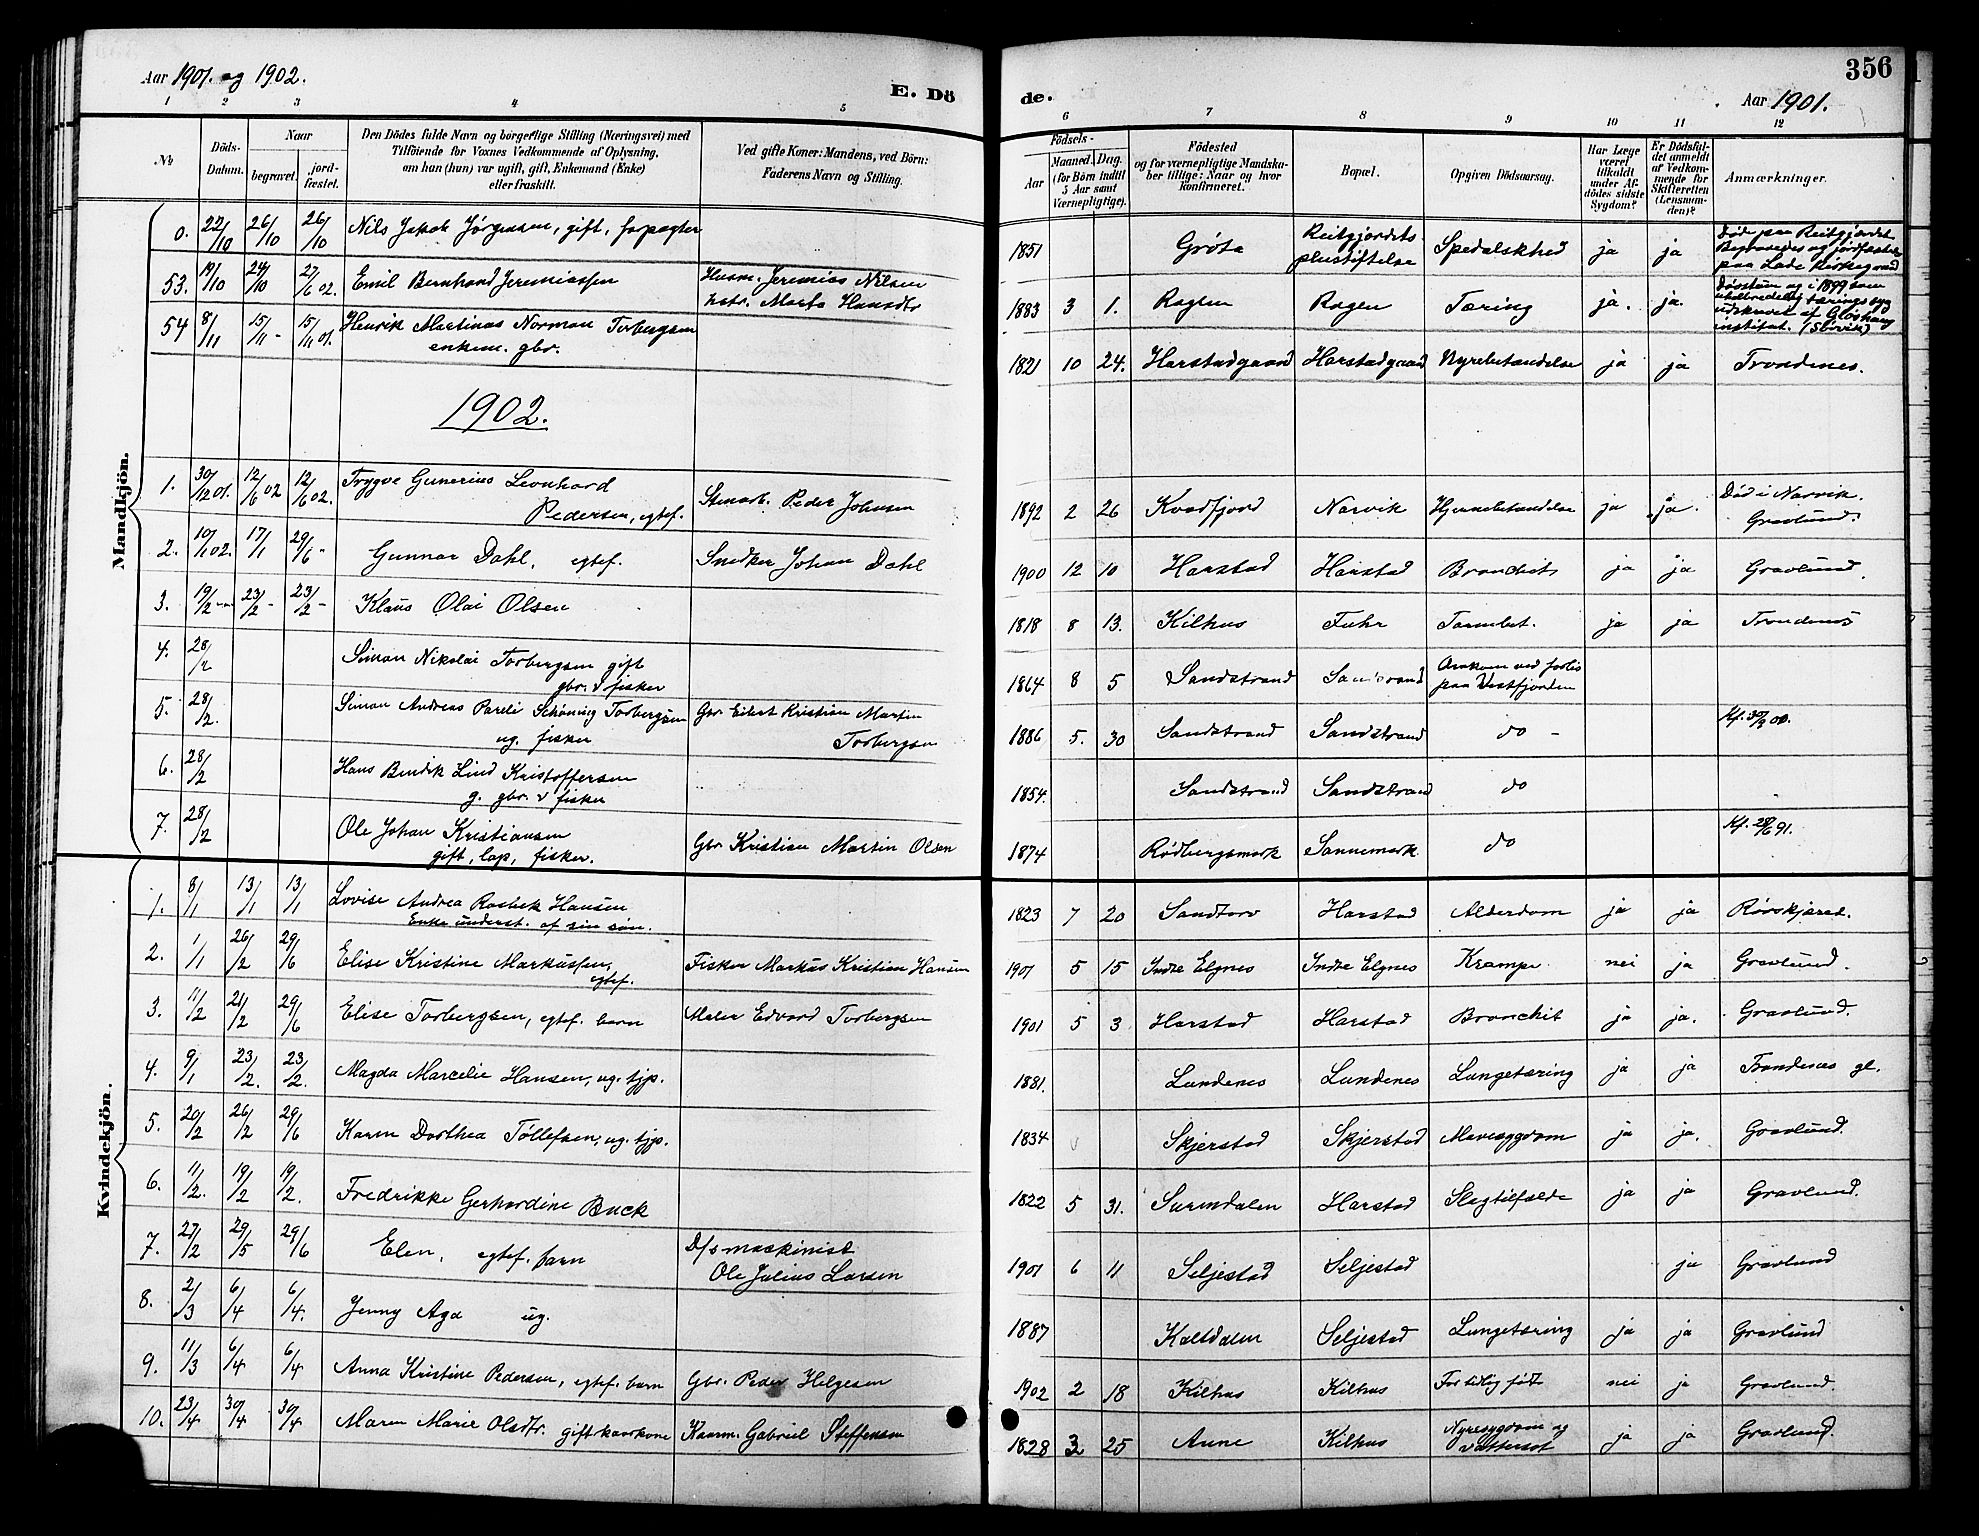 Aar 1901. og 1902.
E. Dö
de.
356
Aar 1901.
1 2 3 4 5 6 7 8 9 10 11 12
No
Döds-Datum.
Naar
begravet.
jord-fæstet.
Den Dödes fulde Navn og borgerlige Stilling (Næringsvei) med
Tilföiende for Voxnes Vedkommende af Oplysning,
om han (hun) var ugift, gift, Enkemand (Enke)
eller fraskilt.
Ved gifte Koner: Mandens, ved Börn:
Faderens Navn og Stilling.
Födsels-
Aar
Maaned. Dag.
(for Börn indtil
5 Aar samt
Værnepligtige).
Födested
og for værnepligtige Mandska-
ber tillige: Naar og hvor
konfirmeret.
Bopæl.
Opgiven Dödsaarsag.
Har Læge
været
tilkaldt
under Af-
dödes sidste
Sygdom?
Er Dödsfal-
det anmeldt
af Vedkom-
mende for
Skifteretten
(Lensman-
den)?
Anmærkninger.
Mandkjön.
0. 22/10 26/10 26/10 Nils Jakob Jörgensen, gift, forpagter 1851 Gröta Reitgjerdets pleiestiftelse Spedalskhed ja ja Död paa Reitgjerdet Begravedes og jordfæstedes paa Lade Kirkegaard
53. 19/10 24/10 27/6 02. Emil Bernhard Jeremiassen Husm. Jeremias Nilsen hstr. Marta Hansdtr 1883 3 1. Rogen Rogen Tæring ja. ja. Dövstum og i 1899 som
54 8/11 15/11 - 15/11 01. Henrik Martinas Norman Torbergsen enkem. gbr. 1821 10 24. Harstadgaard Harstadgaard Nyrebetændelse ja ja Trondenes.
1902.
1. 30/12 01. 12/6 02 12/6 02. Trygve Gunerius Leonhard Pedersen, egtef. Stenarb. Peder Johnsen 1892 2 26 Kvædfjord Narvik Hjernebetændelse ja ja. Död i Narvik. Gravlund.
2. 10/1 02. 17/1 29/6 - Gunnar Dahl, egtef. Snedker Johan Dahl 1900 12 10 Harstad Harstad Bronchit ja ja Gravlund.
3. 19/2 23/2 - 23/2 - Klaus Olai Olsen 1818 8 13. Kilhus Fuhr Tarmbet. ja ja Trondenes
4. 28/2 Simon Nikolai Torbergsen gift gbr. v fisker 1864 8 5 Sandstrand Sandstrand Omkom ved forlis paa Vestfjorden
5. 28/2. Simon Andreas Pareli Schöning Torbergsen ug. fisker Gbr Eilert Kristian Martin Torbergsen 1886 5. 30 Sandstrand Sandstrand do -
6. 28/2 Hans Bendik Lind Kristoffersen g. gbr. v fisker 1854. Sandstrand Sandstrand do
7. 28/2 Ole Johan Kristiansen gift, lap, fisker. Gbr Kristian Martin Olsen 1874 Rödbergsmark Sannemark do Kf. 28/6 91.
Kvindekjön.
1. 8/1 13/1 13/1 Lovise Andrea Rasbek Hansen Enke underst. af sin sön. 1823 7 20 Sandtorv Harstad Alderdom ja ja Rövskjæret.
2. 1/1 26/2 29/6 Elise Kristine Markussen, egtef. Fisker Markus Kristian Hansen 1901 5 15 Indre Elgnes Indre Elgnes Krampe nei ja Gravlund.
3. 11/2 21/2 29/6 Elise Torbergsen, egtef. barn Maler Edvard Torbergsen 1901 5 3 Harstad Harstad Bronchit ja ja. Gravlund.
4. 9/1 23/2. 23/2. Magda Marcelie Hansen, ug. tjp. 1881. Lundenes Lundenes Lungetæring ja ja Trondenes gl.
5. 20/2 26/2 29/6 Karen Dorthea Töllefsen, ug. tjp. 1834 Skjerstad Skjerstad Mavesygdom ja ja. Gravlund.
6. 11/2. 19/2 19/2. Fredrikke Gerhardine Buck 1822 5 31. Surendalen Harstad Slagtilfælde ja ja Gravlund.
7. 27/2 29/5 29/6 Elen, egtef. barn D/s maskinist Ole Julius Larsen 1901 6 11 Seljestad Seljestad ja Gravlund
8. 2/3 6/4 6/4. Jenny Aga ug. 1887 Kaltdalen Seljestad Lungetæring ja ja Gravlund
9. 11/3 6/4 6/4 Anna Kristine Pedersen, egtef. barn Gbr. Peder Helgesen 1902 2 18 Kilhus Kilhus For tidlig födt nei ja Gravlund.
10. 23/4 30/4 30/4 Maren Marie Olsdtr. gift kaarkone Kaarm. Gabriel Steffensen 1828 3 25 Aune Kilhus Nyresygdom og vattersot ja ja Gravlund.